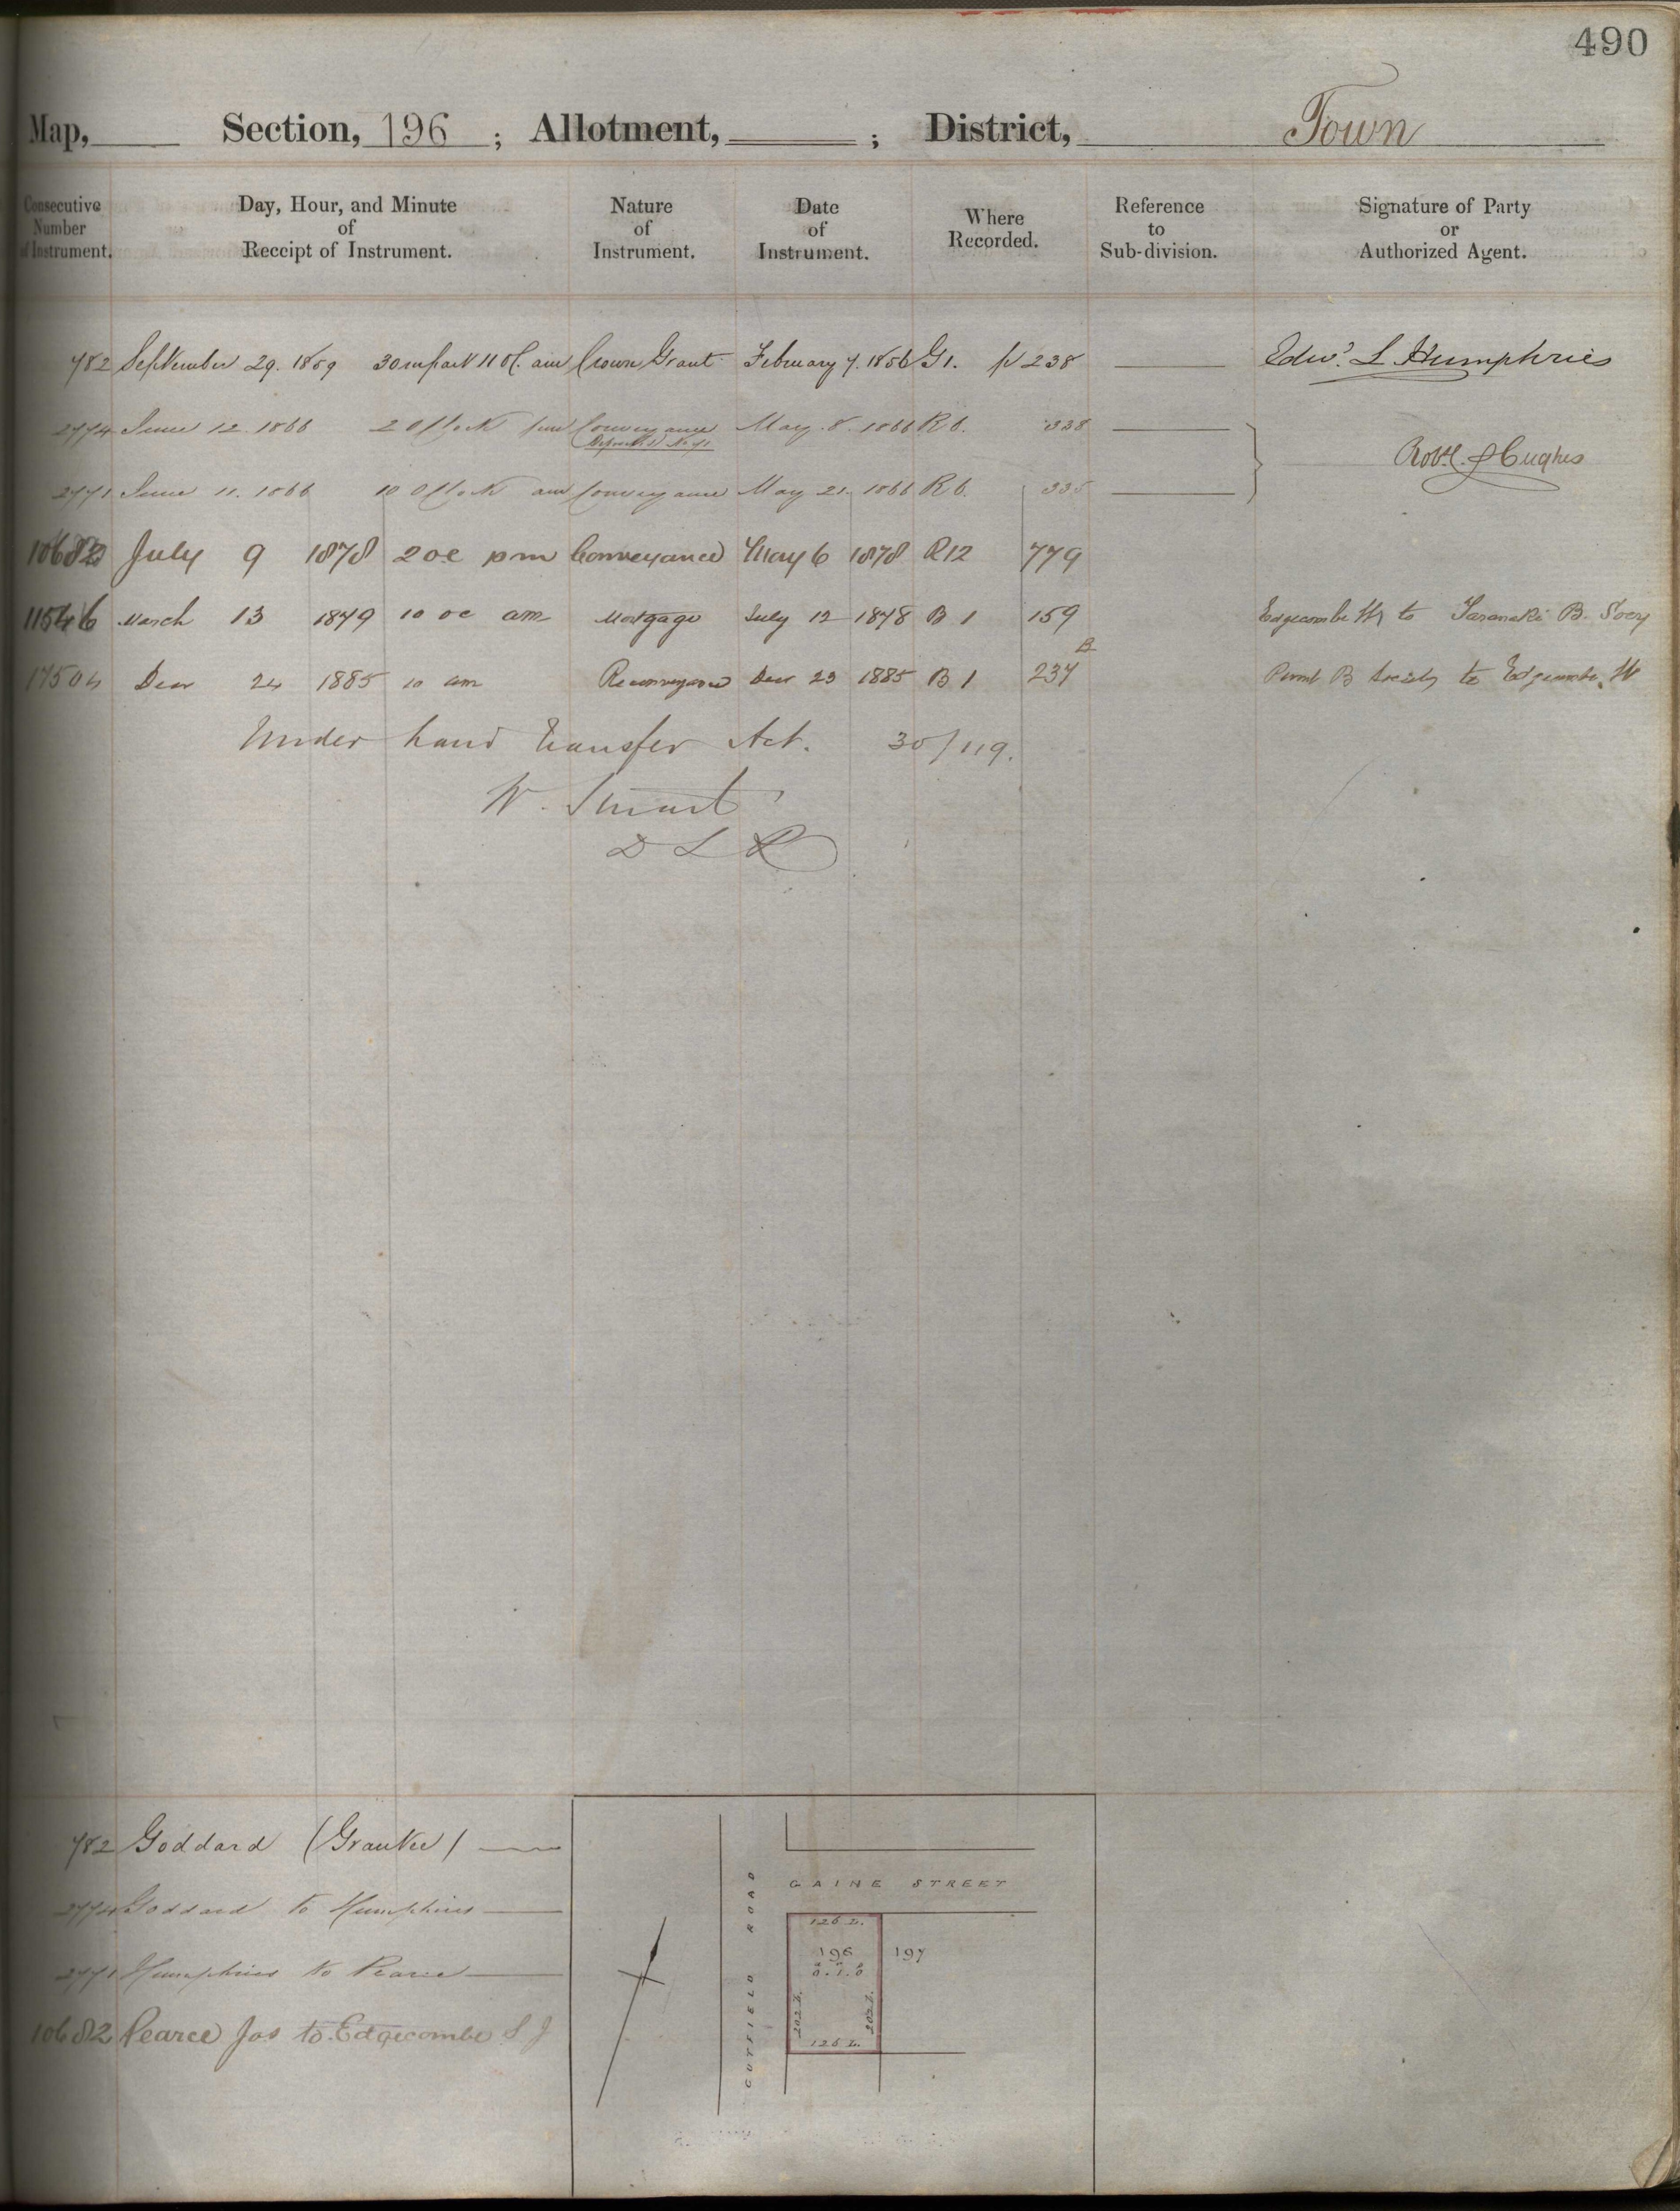 490
Map, Section, 196 ; Allotment, ; District, Town
Consecutive Number of Instrument.
Day, Hour, and Minute of Receipt of Instrument.
Nature of Instrument.
Date of Instrument.
Where Recorded.
Reference to Sub-division.
Signature of Party or Authorized Agent.
782 September 29. 1859 30 m past 11 Oc. am Crown Grant February 7. 1856 G1. p 238 Edwd. L Humphries
2774 June 12 1866 2 O'Clock pm Conveyance May. 8. 1866 R6. 338
Robt. Hughes
2771 June 11. 1866 10 O'Clock am Conveyance May 21. 1866 R6. 335
10682 July 9 1878 2 oc pm Conveyance May 6 1878 R12 779
11546 March 13 1879 10 oc am Mortgage July 12 1878 B 1 159 Edgecombe to Taranaki B. Socy
17504 Decr 24 1885 10 am Reconveyance Decr 23 1885 B 1 237 B Permt B Society to Edgecombe W
Under Land Transfer Act. 30/119.
W. Stuart
D L R
782 Goddard (Grantee)
2774 Goddard to Humphries
2771 Humphries to Pearce
10682 Pearce Jos to Edgecombe S J
GAINE STREET
CUTFIELD ROAD
126 L.
196
0.1.0
197
202 L.
202 L.
126 L.